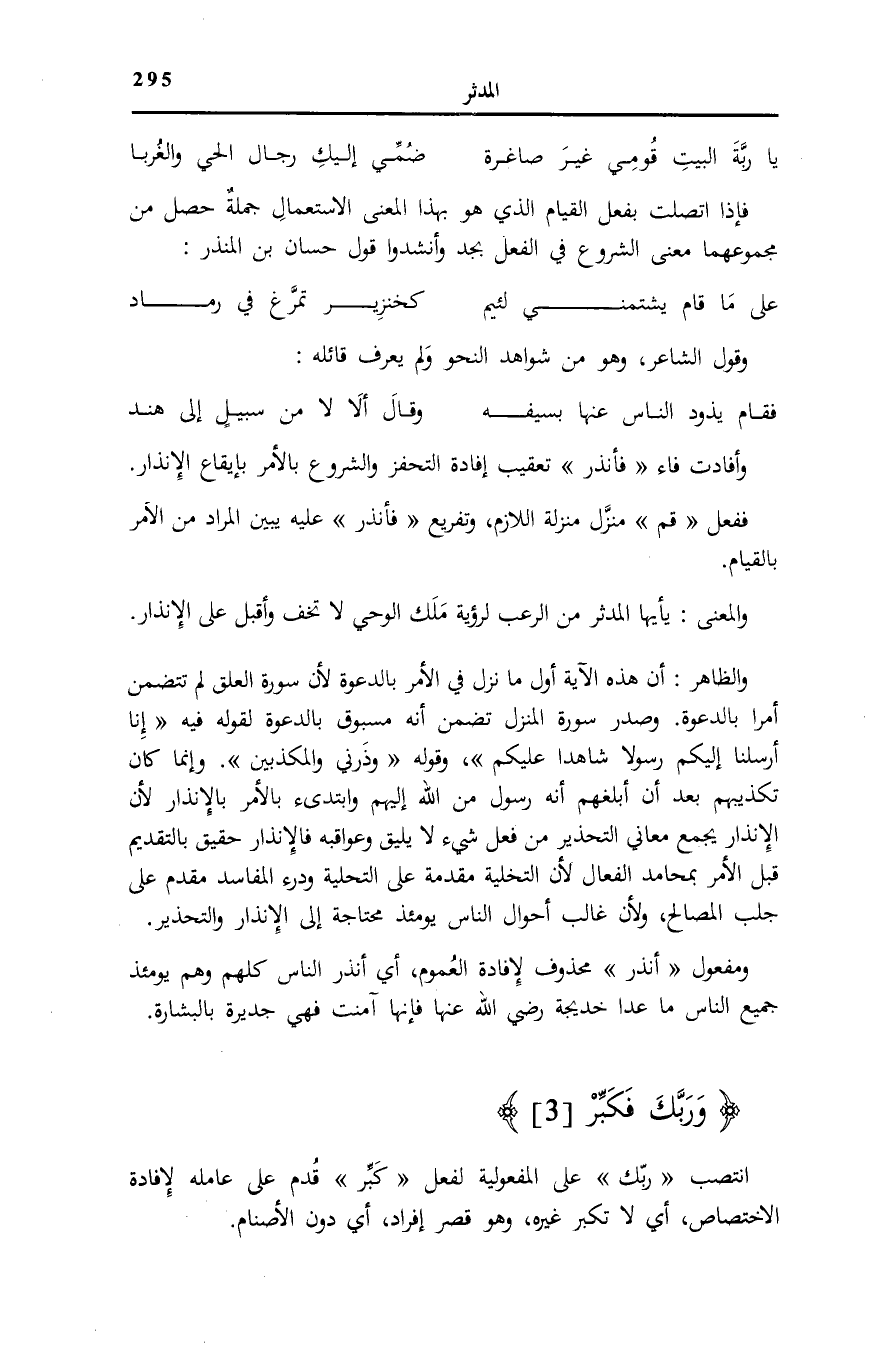 295
المدثر
يا ربَّةَ البيتِ قُومِي غيرَ صاغرة ضُمِّي إليكِ رجال الحي والغُربا
فإذا اتصلت بفعل القيام الذي هو بهذا المعنى الاستعمالِ جملةٌ حصل من
مجموعهما معنى الشروع في الفعل بجد وأنشدوا قول حسان بن المنذر :
على مَا قام يشتمنــي لئيم كخنزِيــر تمرَّغ في رمــاد
وقول الشاعر، وهو من شواهد النحو وَلم يعرف قائله :
فقام يذود الناس عنها بسيفــه وقالَ ألَا لا من سبيلٍ إلى هند
وأفادت فاء « فأنذر » تعقيب إفادة التحفز والشروع بالأمر بإيقاع الإنذار.
ففعل « قم » منزَّل منزلة اللازم، وتفريع « فأنذر » عليه يبين المراد من الأمر
بالقيام.
والمعنى : يأيها المدثر من الرعب لرؤية مَلَك الوحي لا تخف وأقبل على الإنذار.
والظاهر : أن هذه الآية أول ما نزل في الأمر بالدعوة لأن سورة العلق لم تتضمن
أمرا بالدعوة. وصدر سورة المزل تضمن أنه مسبوق بالدعوة لقوله فيه « إِنا
أرسلنا إليكم رسولا شاهدا عليكم »، وقوله « وذَرني والمكذبين ». وإنما كان
تكذيبهم بعد أن أبلغهم أنه رسول من الله إليهم وابتدىء بالأمر بالإنذار لأن
الإنذار يجمع معاني التحذير من فعل شيء لا يليق وعواقبه فالإنذار حقيق بالتقديم
قبل الأمر بمحامد الفعال لأن التخلية مقدمة على التحلية ودرء المفاسد مقدم على
جلب المصالح، ولأن غالب أحوال الناس يومئذ محتاجة إلى الإنذار والتحذير.
ومفعول « أنذر » محذوف لإفادة العُموم، أي أنذر الناس كلهم وهم يومئذ
جميع الناس ما عدا خديجة رضي الله عنها فإنها آمنت فهي جديرة بالبشارة.
﴿ وَرَبَّكَ فَكَبِّرْ [3] ﴾
انتصب « ربّك » على المفعولية لفعل « كَبِّر » قُدم على عامله لإفادة
الاختصاص، أي لا تكبر غيره، وهو قصر إفراد، أي دون الأصنام.